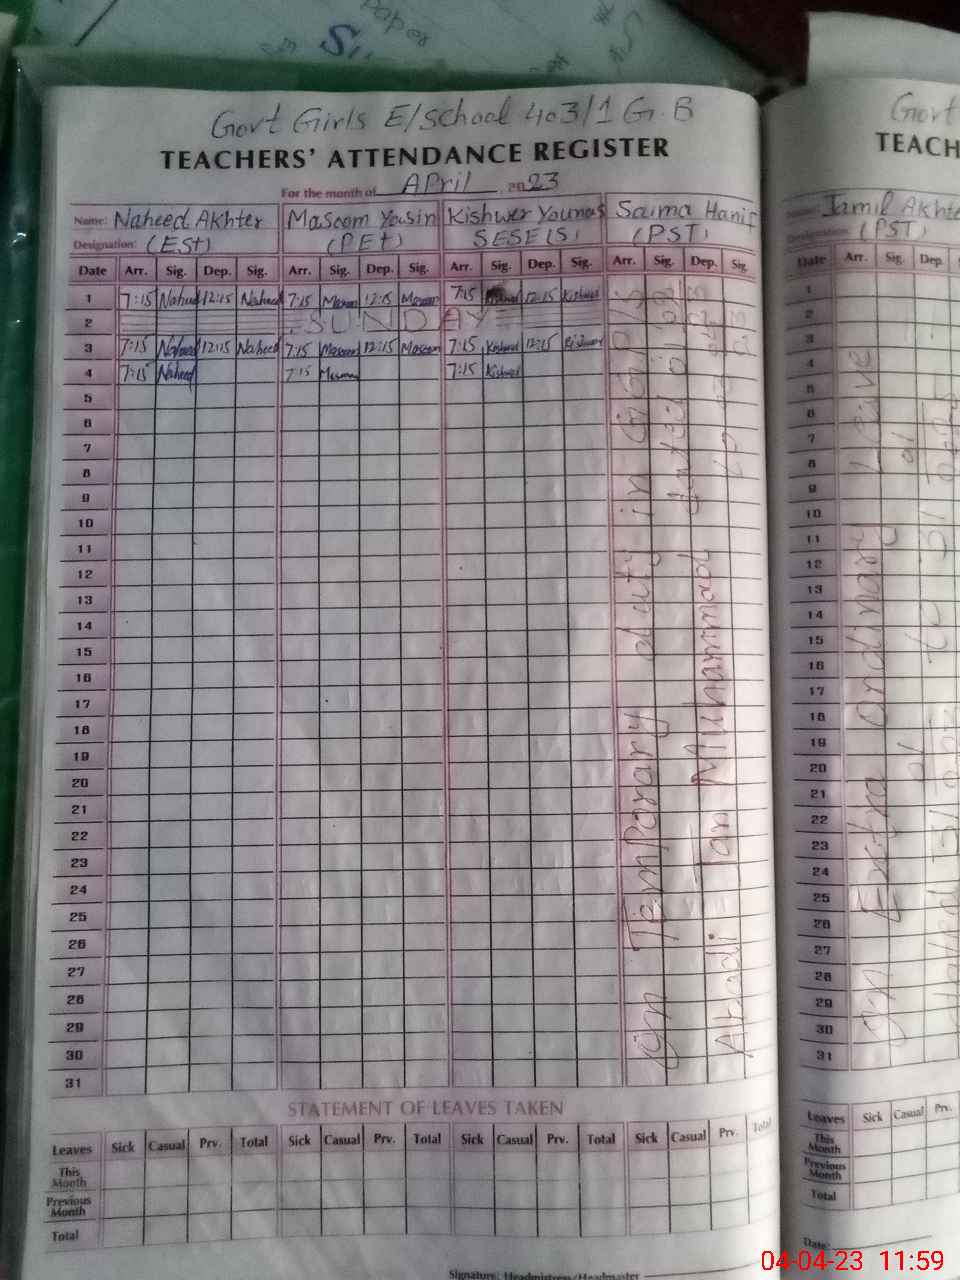 paper
Govt Girls E/School 403/1 G.B
TEACHERS' ATTENDANCE REGISTER
For the month of April 2023
Name: Naheed Akhter Masoom Yasin Kishwer Younas Saima Hanif
Designation: (ESt) (PEt) SESE(S) (PST)
Date Arr. Sig. Dep. Sig. Arr. Sig. Dep. Sig. Arr. Sig. Dep. Sig. Arr. Sig. Dep. Sig.
1 7:15 Naheed 12:15 Naheed 7:15 Masoom 12:15 Masoom 7:15 12:15 Kishwer
2 SUNDAY
3 7:15 Naheed 12:15 Naheed 7:15 Masoom 12:15 Masoom 7:15 Kishwer 12:15 Kishwer
4 7:15 Naheed 7:15 Masoom 7:15 Kishwer
5
6
7
8
9
10
11
12
13
14
15
16
17
18
19
20
21
22
23
24
25
26
27
28
29
30
31
On Temparary duty in GGP/S
Abadi Jan Muhammad dated
STATEMENT OF LEAVES TAKEN
Leaves Sick Casual Prv. Total Sick Casual Prv. Total Sick Casual Prv. Total Sick Casual Prv. Total
This Month
Previous Month
Total
Signature: Headmistress/Headmaster
Govt
TEACH
Name: Jamil Akhte
Designation: (PST)
Date Arr. Sig. Dep.
1
2
3
4
5
6
7
8
9
10
11
12
13
14
15
16
17
18
19
20
21
22
23
24
25
26
27
28
29
30
31
On Extra ordinary Leave
Leaves Sick Casual Prv.
This Month
Previous Month
Total
Date:
04-04-23 11:59